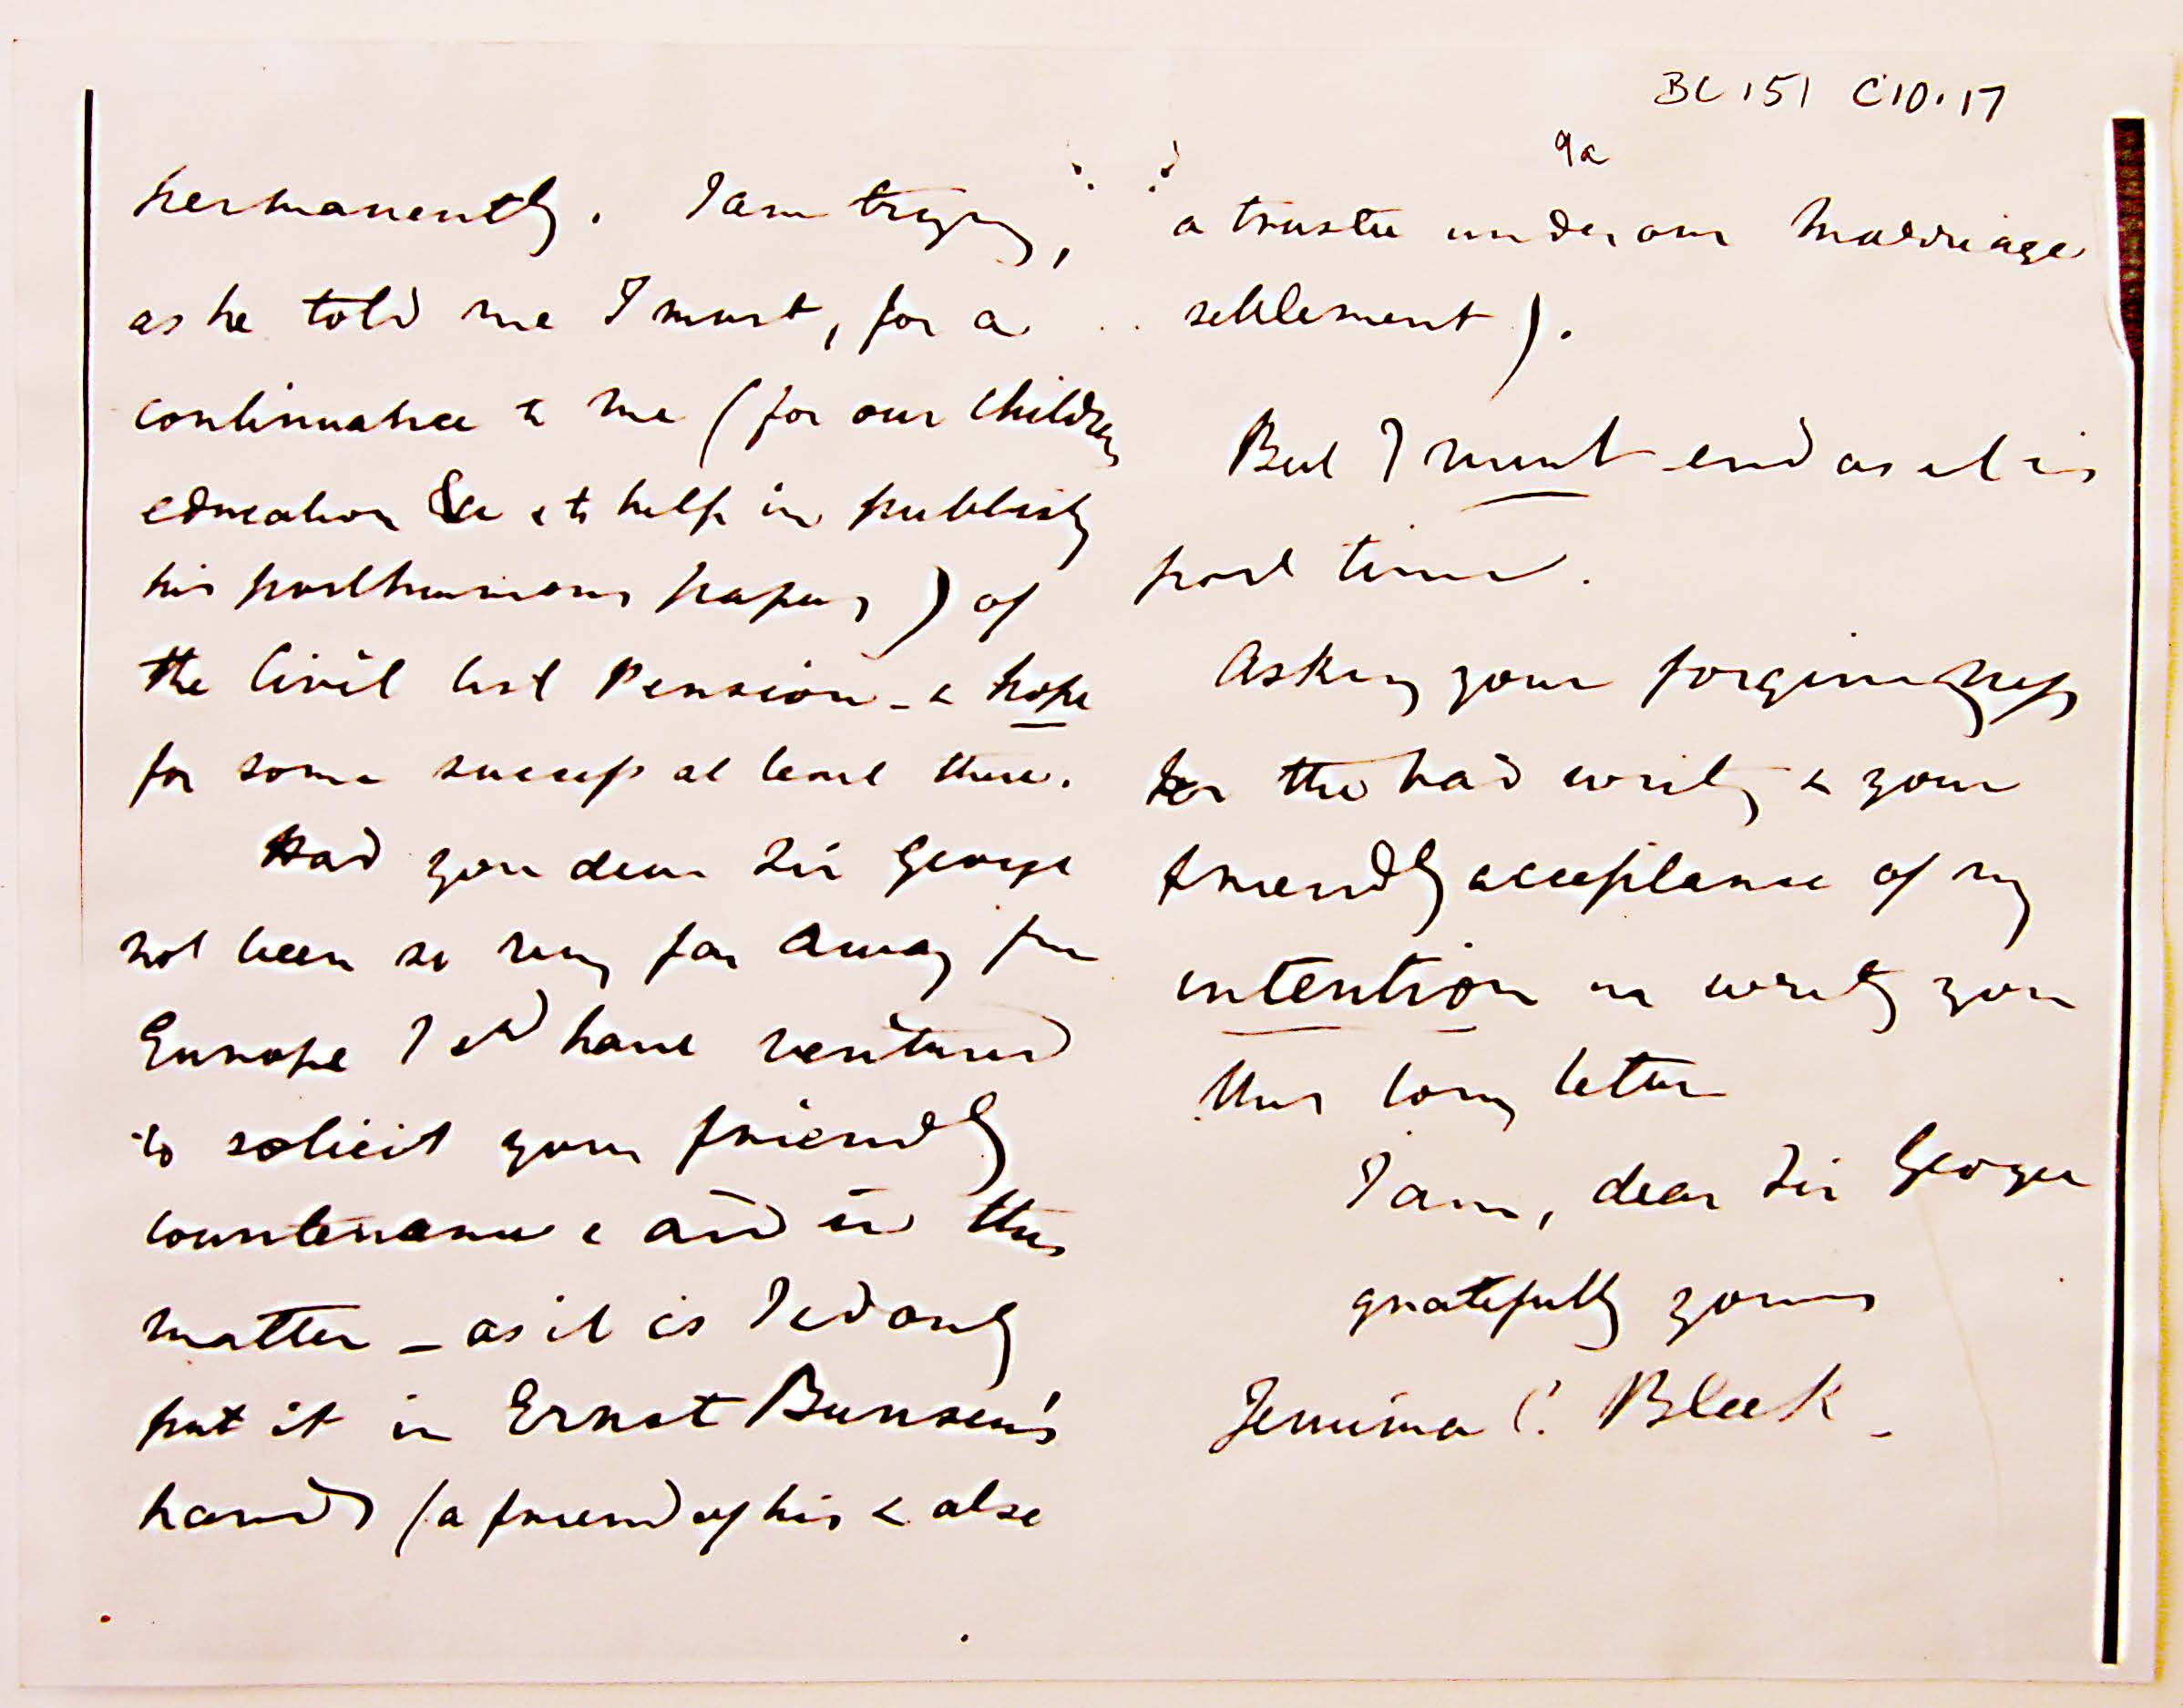 BC 151 C10.17
9a
permanently. I am trying,
as he told me I must, for a
continuance to me (for our children
education &c & to help in publishing
his posthumous papers) of
the Civil List Pension - & hope
for some success at least there.
Had you dear Sir George
not been so very far away from
Europe I shd have ventured
to solicit your friendly
countenance & aid in this
matter - as it is I cd only
put it in Ernest Bunsen's
hands (a friend of his & also
a trustee under our marriage
settlement).
But I must end as it is
post time.
Asking your forgiveness
for the bad writing & your
friendly acceptance of my
intention in writing you
this long letter
I am, dear Sir George
gratefully yours
Jemima C. Bleek -